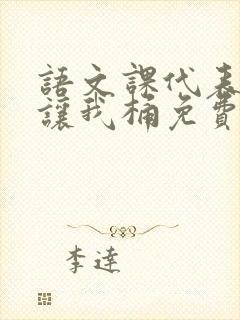 語文課代表
讓我桶免費
李達